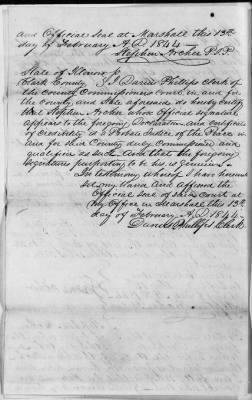 and Official seal at Marshall this 13th
day of February A.D. 1844
Stephen Archer P.J.P.
State of Illinois }
Clark County } I Daniel Phillips Clerk of
the County Commissioners Court in and for
the County and State aforesaid do hereby certify
that Stephen Archer whose Official signature
appears to the foregoing Declaration and Certificate
of credibility is a Probate Justice of the Peace in
and for said County duly Commissioned and
qualified as such and that the foregoing
signature purporting to be his is genuine
In testimony whereof I have hereunto
set my hand and affixed the
Official seal of said Court at
my Office in Marshall this 13th
day of February A.D. 1844
Daniel Phillips Clerk